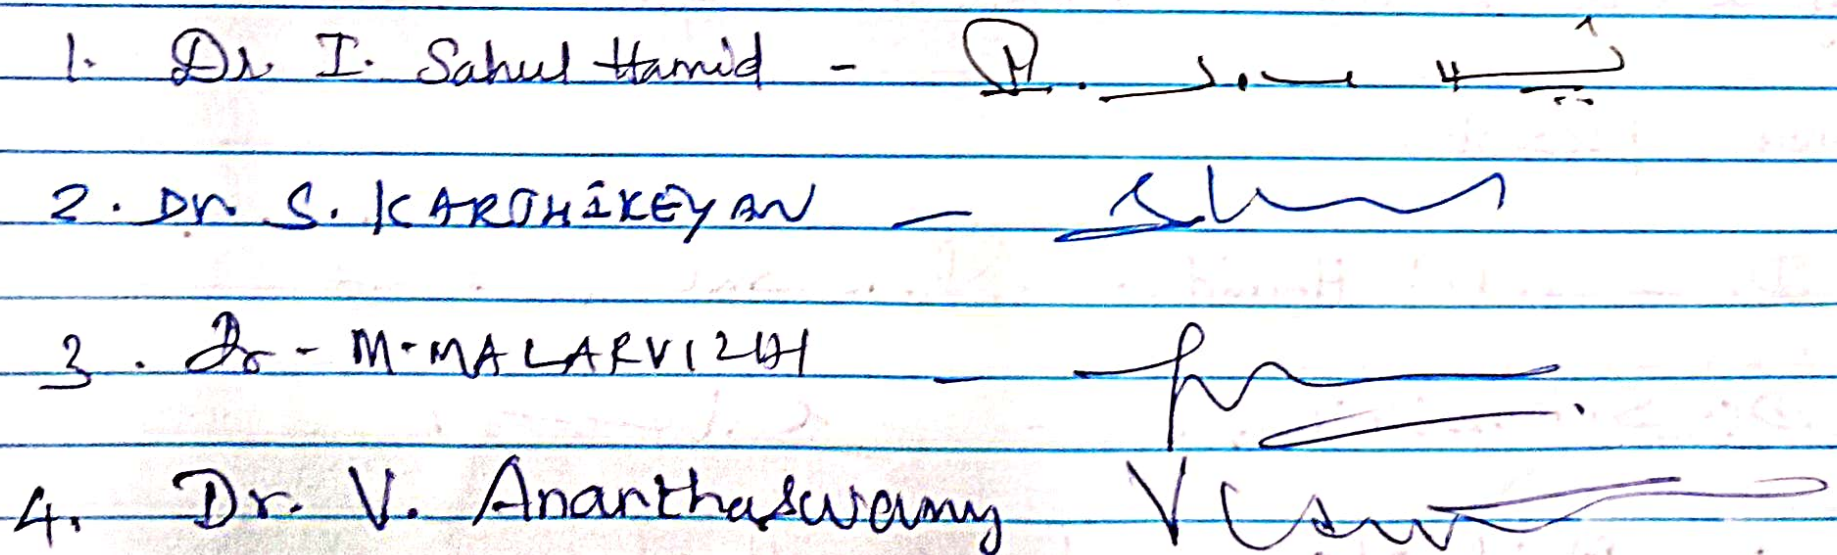 1. Dr I. Sahul Hamid -
2. Dr S. KARTHIKEYAN -
3. Dr - M. MALARVIZHI -
4. Dr. V. Ananthaswamy